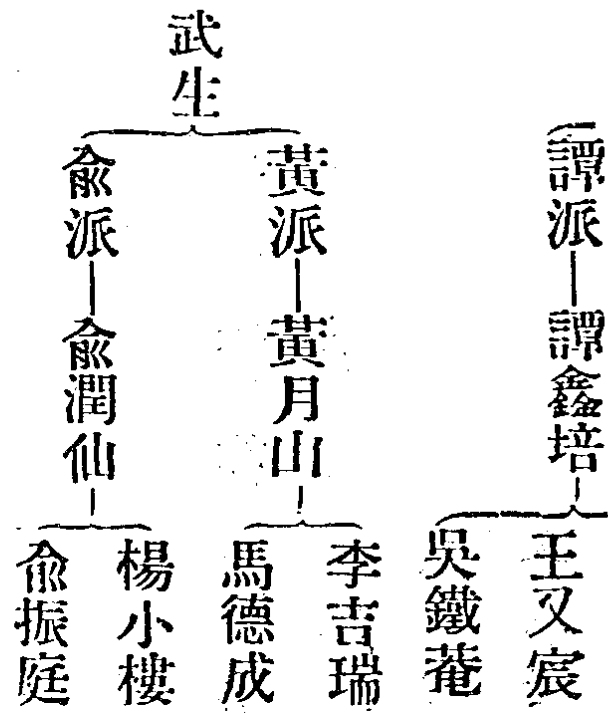 譚派
譚鑫培
王又宸
吳鐵菴
武生
黃派
黃月山
李吉瑞
馬德成
俞派
俞潤仙
楊小樓
俞振庭